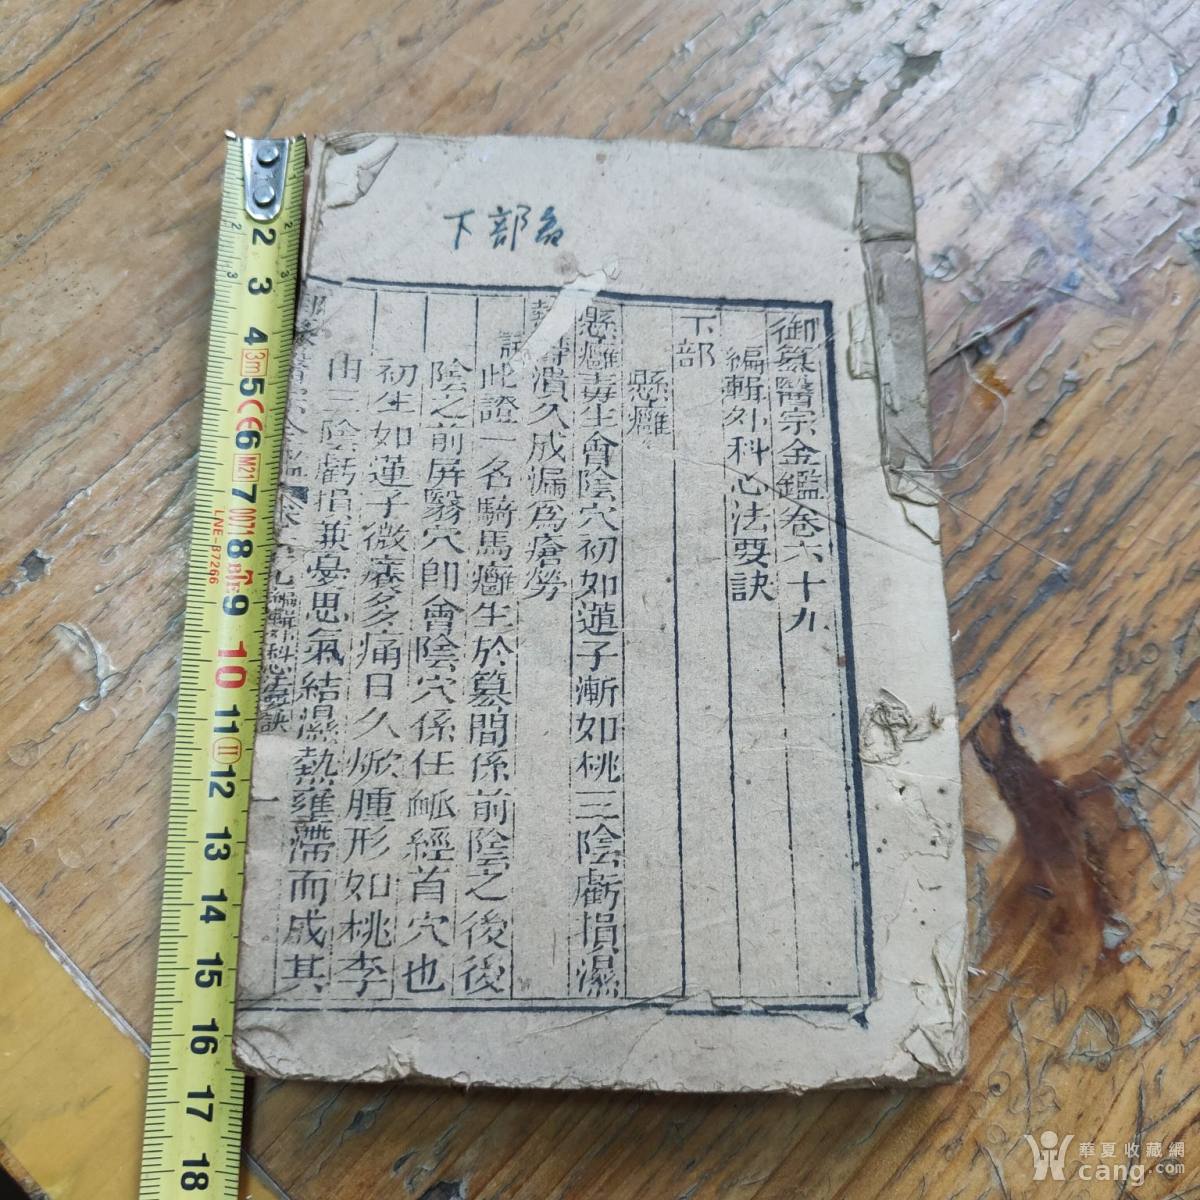 下部
御纂醫宗金鑑卷六十九
編輯外科心法要訣
下部
懸癰
懸癰毒生會陰穴初如蓮子漸如桃三陰虧損濕
熱 潰久成漏為瘡勞
註此證一名騎馬癰生於篡間係前陰之後後
陰之前屏翳穴卽會陰穴係任脈經首穴也
初生如蓮子微癢多痛日久焮腫形如桃李
由三陰虧損兼憂思氣結濕熱壅滯而成其
九編輯外科心法要訣
一
2
3
4
5
6
7
8
9
10
11
12
13
14
15
16
17
18
3m
CE
M21
0071
LNE-B7266
II
華夏收藏網
cang.com